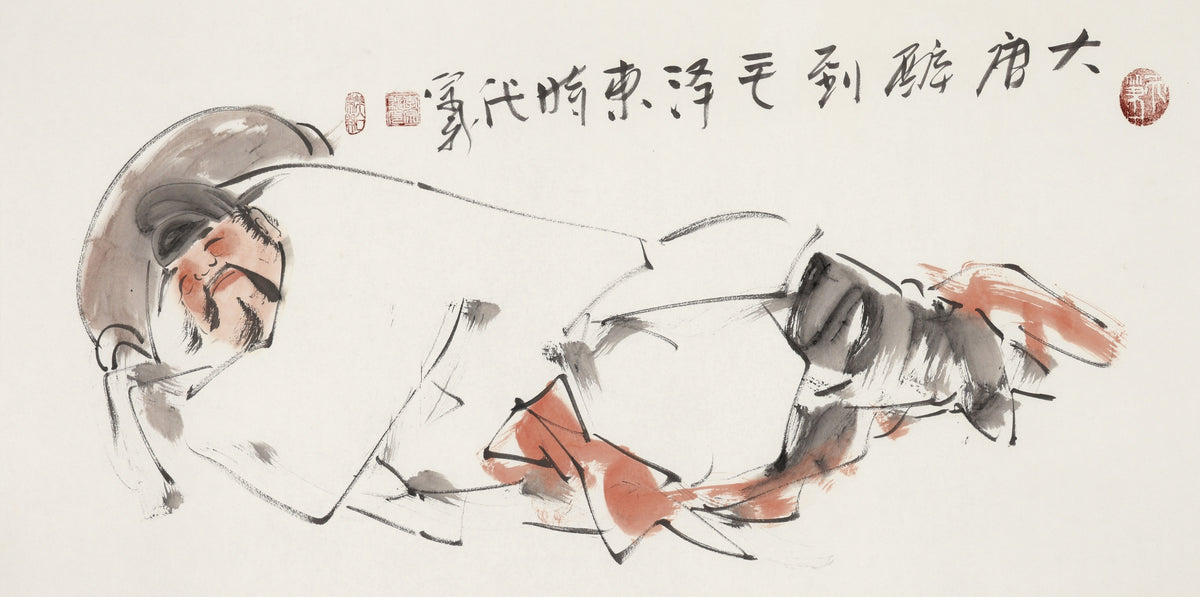 大唐醉到毛泽東時代